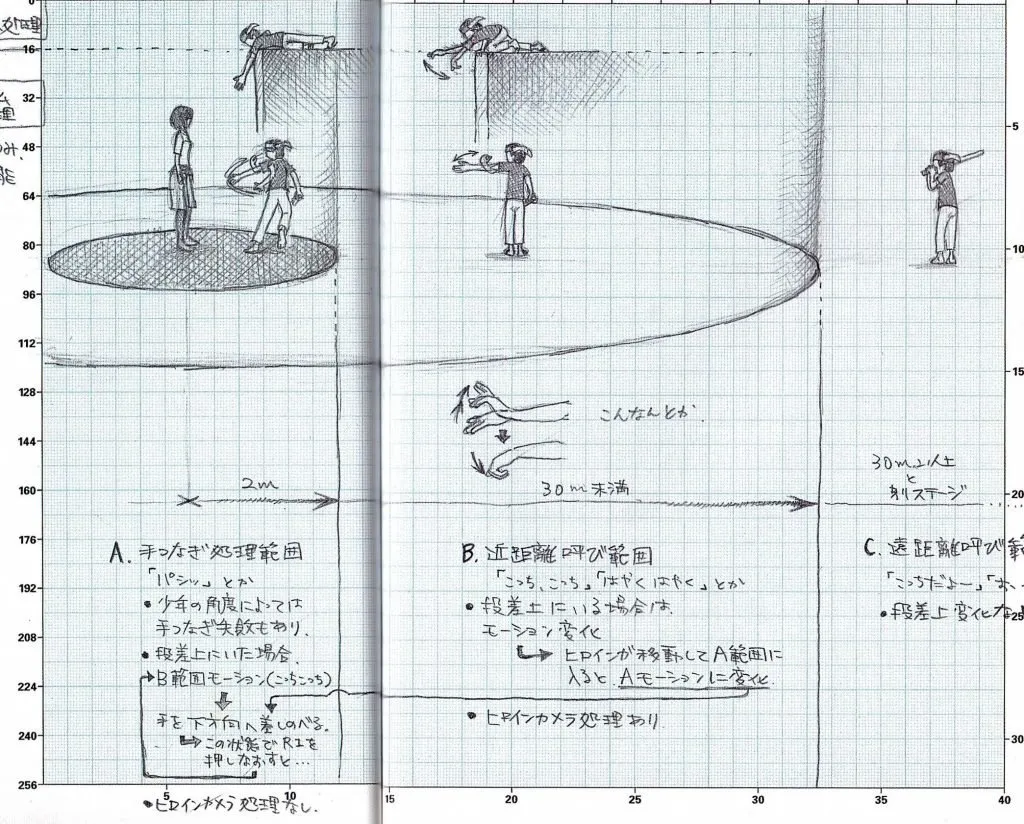 処理
0
16
32
48
64
80
96
112
128
144
160
176
192
208
224
240
256
5
10
15
20
25
30
こんなんとか.
2m
30m未満
30m以上
と
別ステージ
A. 手つなぎ処理範囲
「パシッ」とか
・少年の角度によっては
手つなぎ失敗もあり.
・段差上にいた場合.
B範囲モーション(こっちこっち)
手を下方向へ差しのべる.
この状態でR1を
押しなおすと…
・ヒロインカメラ処理なし.
B. 近距離呼び範囲
「こっち、こっち」「はやくはやく」とか
・段差上にいる場合は
モーション変化
ヒロインが移動してA範囲に
入ると.Aモーションに変化.
・ヒロインカメラ処理あり.
C. 遠距離呼び範
「こっちだよー」「お、
・段差上変化な
5
15
20
25
30
35
40